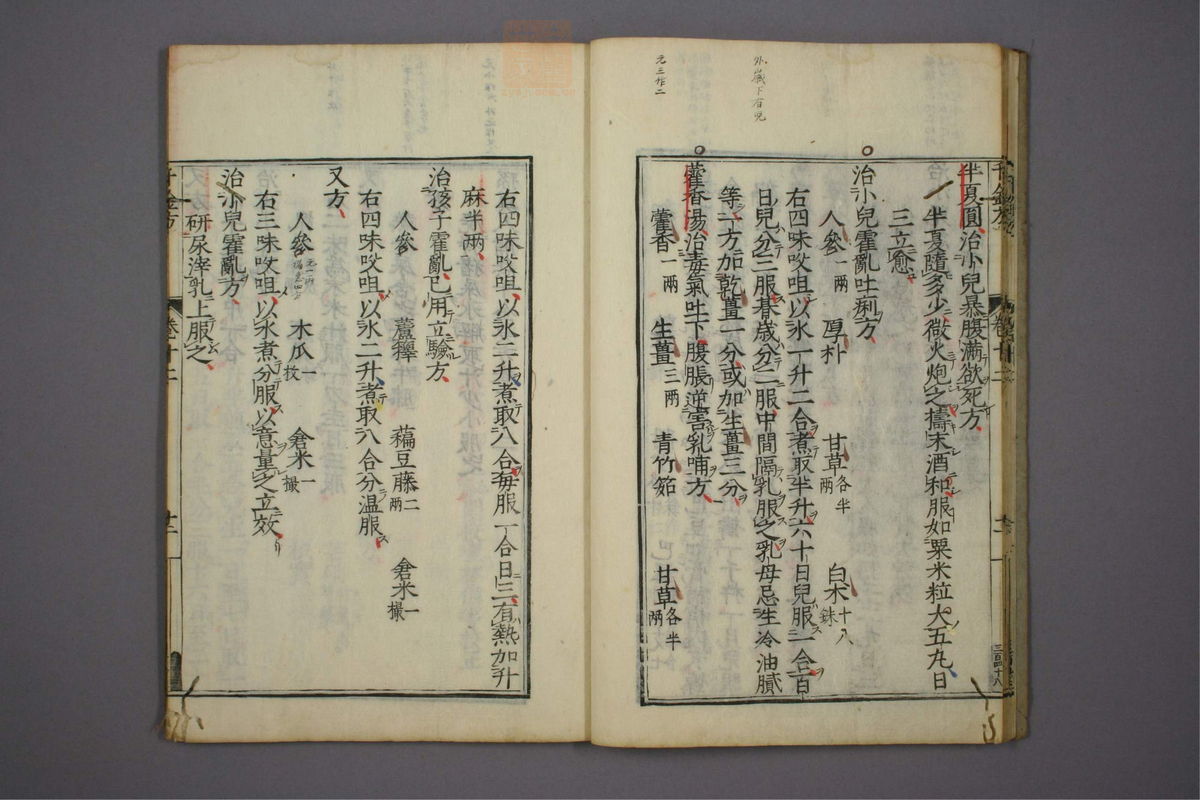 半夏圓治小兒暴腹滿欲死方
半夏隨多少微火炮之擣末酒和服如粟米粒大五丸日
三立愈
治小兒霍亂吐痢方
人參一兩 厚朴 甘草各半兩 白朮十八銖
右四味㕮咀以水一升二合煮取半升六十日兒服一合百
日兒分三服朞歲分二服中間隔乳服之乳母忌生冷油膩
等一方加乾薑一分或加生薑三分
藿香湯治毒氣吐下腹脹逆害乳哺方
藿香一兩 生薑三兩 青竹筎 甘草各半兩
外臺下有兒
元三作二
千金方
卷廿二
右四味㕮咀以水二升煮取八合每服一合日三有熱加升
麻半兩
治孩子霍亂已用立驗方
人參 蘆籜 藊豆藤二兩 倉米一撮
右四味㕮咀以水二升煮取八合分温服
又方
人參 木瓜一枚 倉米一撮
右三味㕮咀以水煮分服以意量之立效
治小兒霍亂方
研尿滓乳上服之
千金方
卷廿二